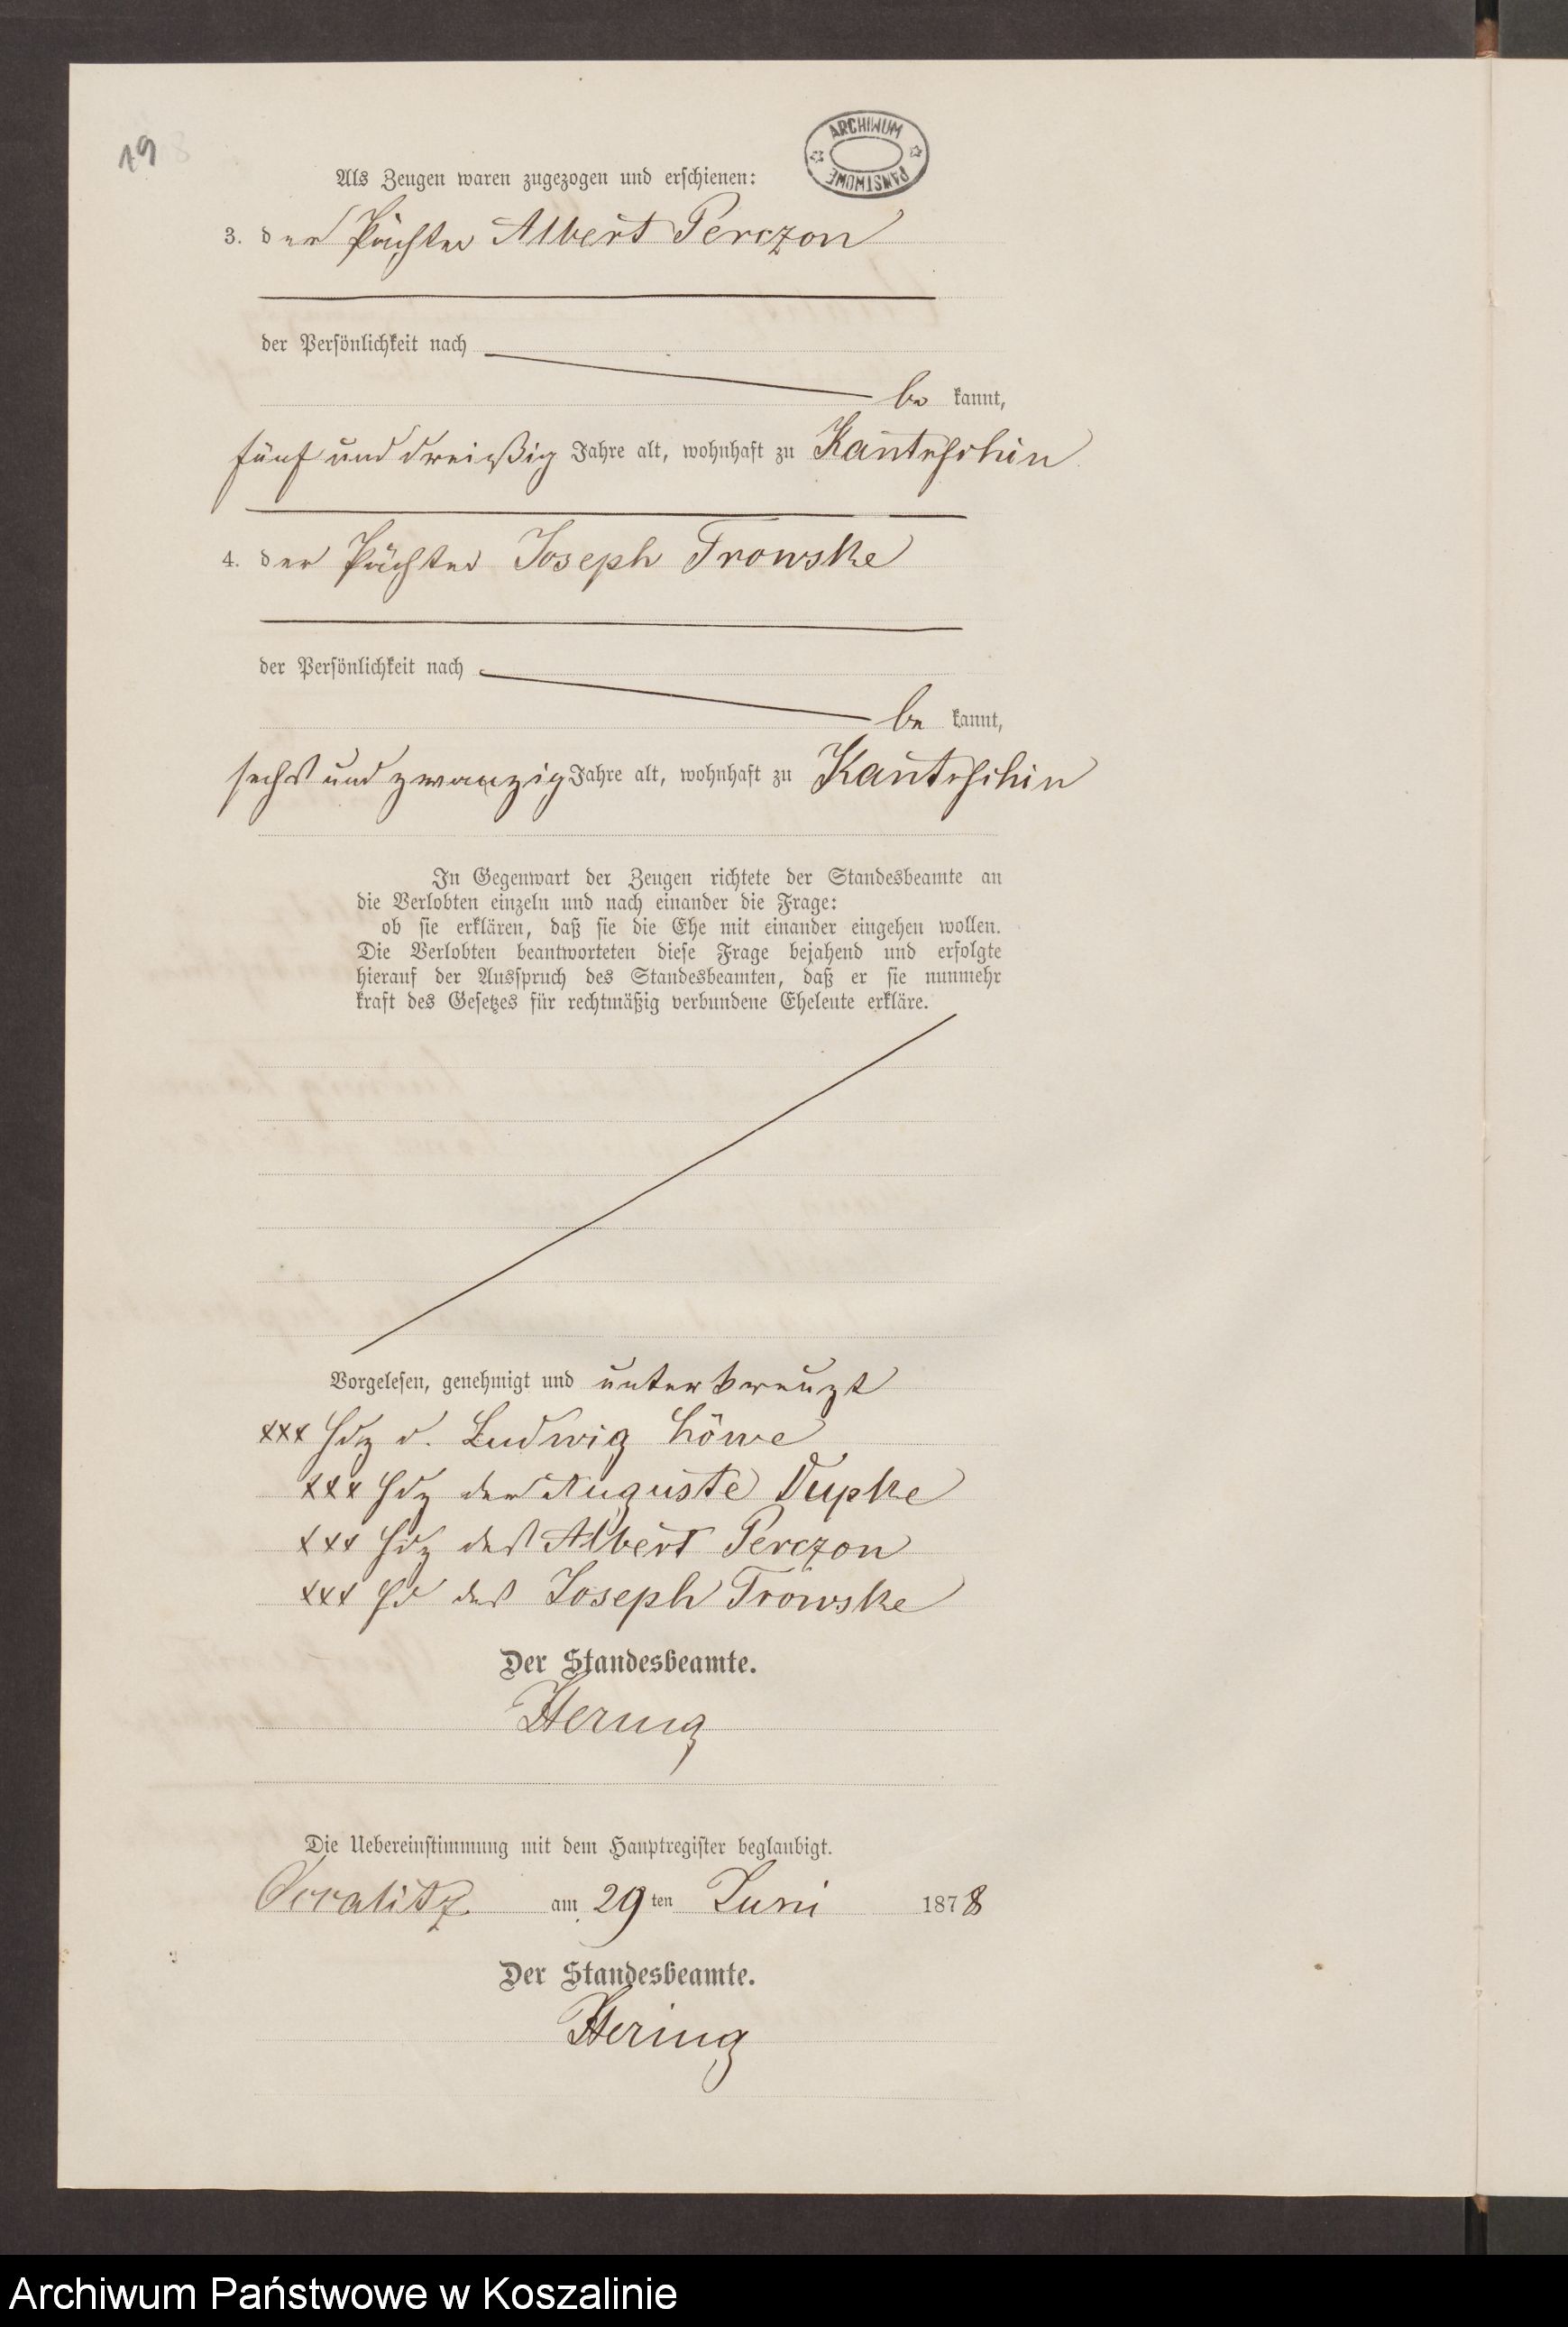 19
ARCHIWUM PAŃSTWOWE
Als Zeugen waren zugezogen und erschienen:
3. der Pächter Albert Perczon
der Persönlichkeit nach
be kannt,
fünf und dreißig Jahre alt, wohnhaft zu Kautrschin
4. der Pächter Joseph Trowske
der Persönlichkeit nach
be kannt,
sechs und zwanzig Jahre alt, wohnhaft zu Kautrschin
In Gegenwart der Zeugen richtete der Standesbeamte an
die Verlobten einzeln und nach einander die Frage:
ob sie erklären, daß sie die Ehe mit einander eingehen wollen.
Die Verlobten beantworteten diese Frage bejahend und erfolgte
hierauf der Ausspruch des Standesbeamten, daß er sie nunmehr
kraft des Gesetzes für rechtmäßig verbundene Eheleute erkläre.
Vorgelesen, genehmigt und unterkreuzt
xxx Hdz d. Ludwig Löwe
xxx Hdz der Auguste Dupke
xxx Hdz des Albert Perczon
xxx Hd des Joseph Trowske
Der Standesbeamte.
Hering
Die Uebereinstimmung mit dem Hauptregister beglaubigt.
am 29ten Juni 1878
Der Standesbeamte.
Hering
Archiwum Państwowe w Koszalinie